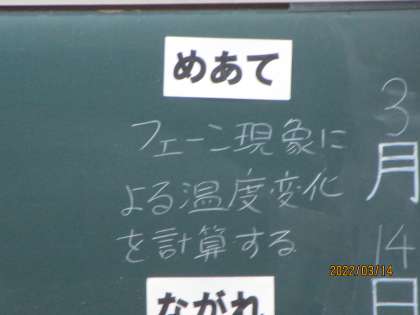 めあて
フェーン現象に
よる温度変化
を計算する
ながれ
3
月
14
日
2022/03/14